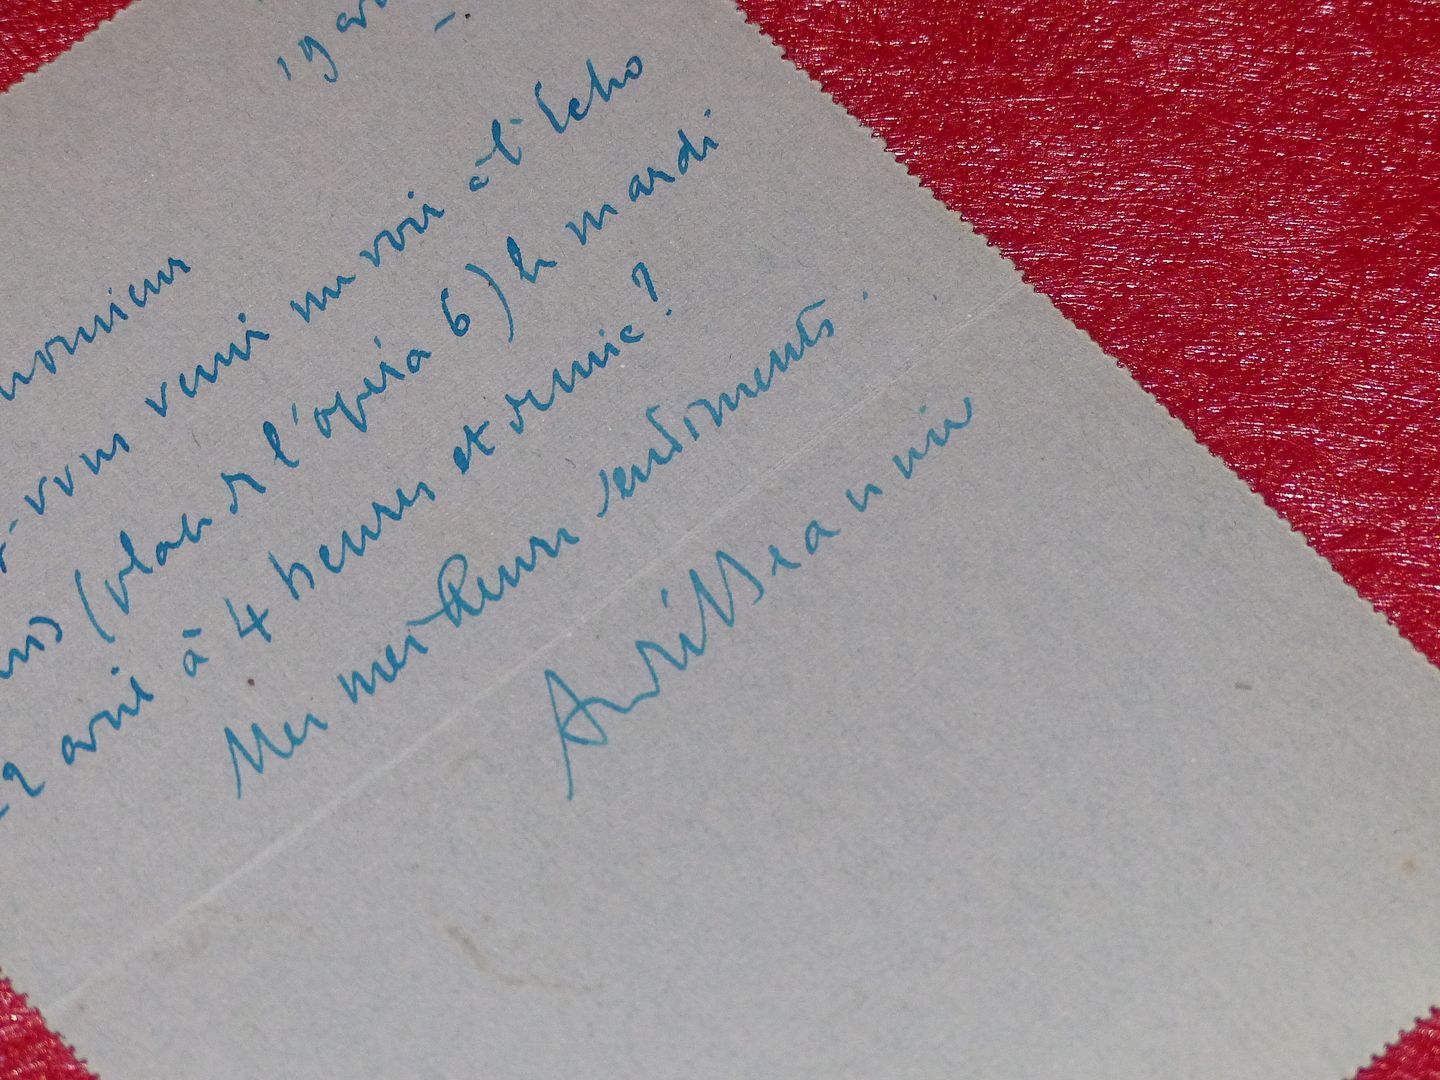 19 av
monsieur
-vous venir me voir à l'Echo
(place de l'opéra 6) le mardi
avril à 4 heures et demie ?
Mes meilleurs sentiments.
André Beaunier